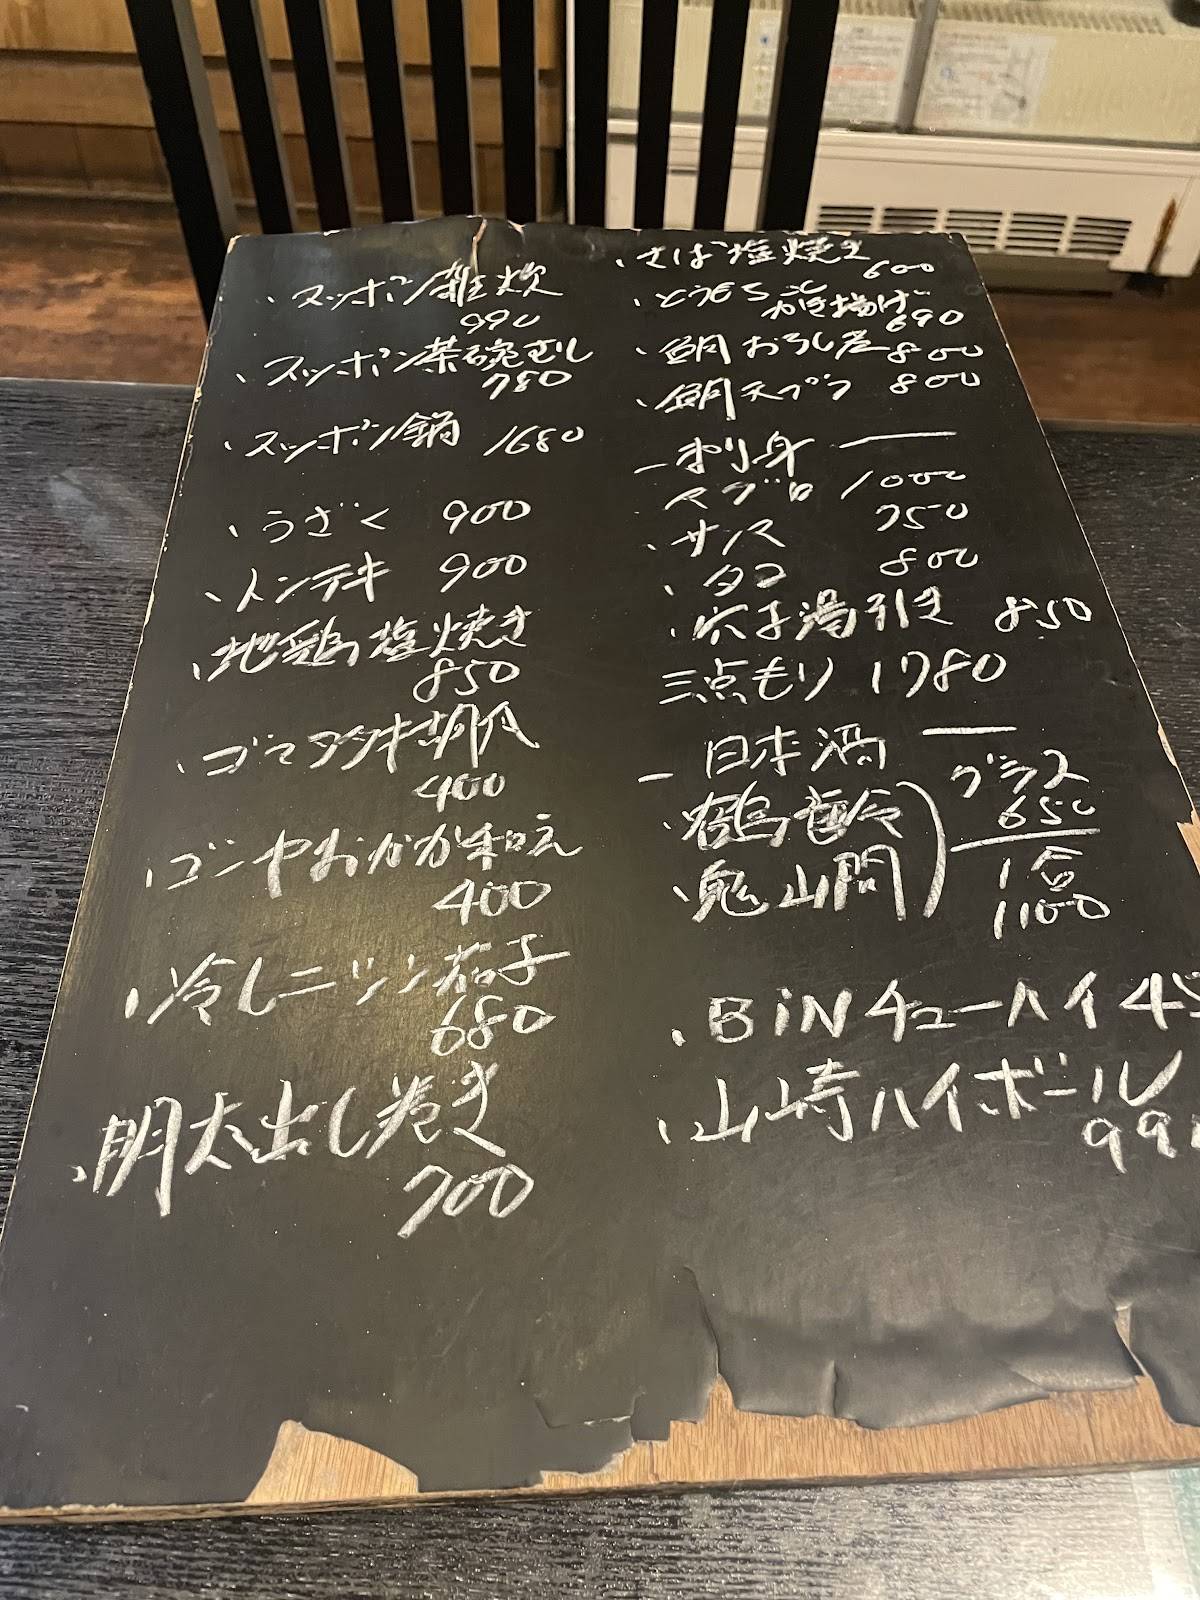 、スッポン雑炊
990
、スッポン茶碗むし
780
、スッポン鍋 1680
、うざく 900
、トントキ 900
、地鶏塩焼き
850
、ゴマタタキ胡瓜
400
、ゴーヤおかか和え
400
、冷しニシン茄子
680
、明太出し巻き
700
、さば塩焼き
600
、とうもろこし
かき揚げ
690
、鯛おろし煮 800
、鯛天プラ 800
ー 刺身 ー
マグロ 1000
、サンマ 750
、タコ 800
、穴子湯引き 850
三点もり 1780
ー 日本酒 ー
、鶴齢
、鬼山間
グラス
650
1合
1100
、BiNチューハイ
、山崎ハイボール